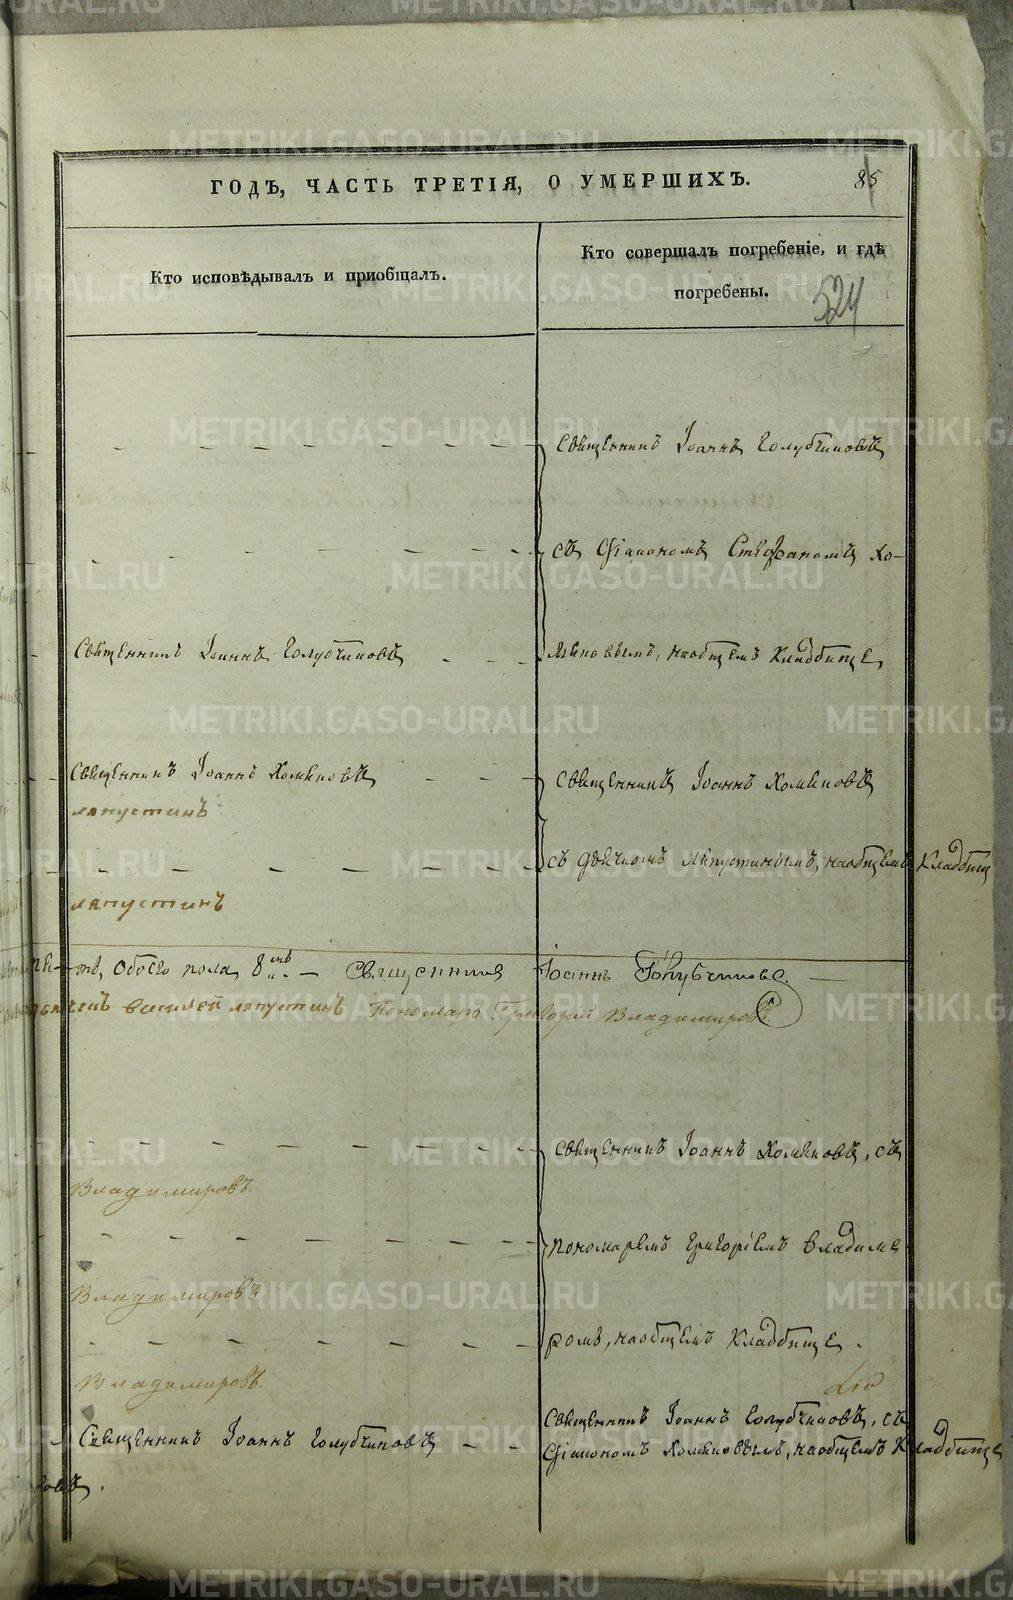 ГОДЪ, ЧАСТЬ ТРЕТІЯ, О УМЕРШИХЪ.
85
Кто исповѣдывалъ и приобщалъ.
Кто совершалъ погребеніе, и гдѣ
погребены.
524
Священникъ Іоаннъ Голубчиковъ
съ Діакономъ Стефаномъ Хо-
Священникъ Іоаннъ Голубчиковъ
мяковымъ, наобщемъ Кладбище,
Священникъ Іоаннъ Хомяковъ
Священникъ Іоаннъ Хомяковъ
ляпустинъ
съ дьячкомъ Ляпустинымъ, наобщемъ Кладбищ
ляпустинъ
Обоего пола 8 Священникъ Іоаннъ Голубчиковъ.
Василей ляпустинъ Пономарь Григорій Владимировъ
Священникъ Іоаннъ Хомяковъ, съ
Владимировъ
пономаремъ Григоріемъ Владими
Владимировъ
ромъ, наобщемъ Кладбище.
Владимировъ
Священникъ Іоаннъ Голубчиковъ, съ
Священникъ Іоаннъ Голубчиковъ
Діакономъ Хомяковымъ, наобщемъ Кладбище
METRIKI.GASO-URAL.RU